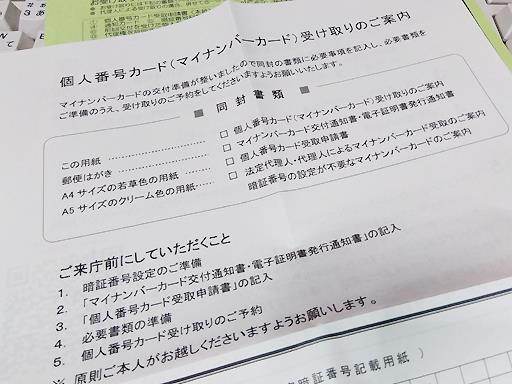 個人番号カード(マイナンバーカード)受け取りのご案内
マイナンバーカードの交付準備が整いましたので同封の書類に必要事項を記入し、必要書類を
ご準備のうえ、受け取りのご予約をしてくださいますようお願いいたします。
■ 同封書類 ■
この用紙 …………………… □ 個人番号カード(マイナンバーカード)受け取りのご案内
郵便はがき …………………… □ マイナンバーカード交付通知書・電子証明書発行通知書
A4サイズの若草色の用紙 …… □ 個人番号カード受取申請書
A5サイズのクリーム色の用紙…… □ 法定代理人・代理人によるマイナンバーカード受取のご案内
暗証番号の設定が不要なマイナンバーカードのご案内
ご来庁前にしていただくこと
1. 暗証番号設定のご準備
2. 「マイナンバーカード交付通知書・電子証明書発行通知書」の記入
3. 「個人番号カード受取申請書」の記入
4. 必要書類の準備
5. 個人番号カード受け取りのご予約
※ 原則ご本人がお越しくださいますようお願いします。
暗証番号記載用紙)